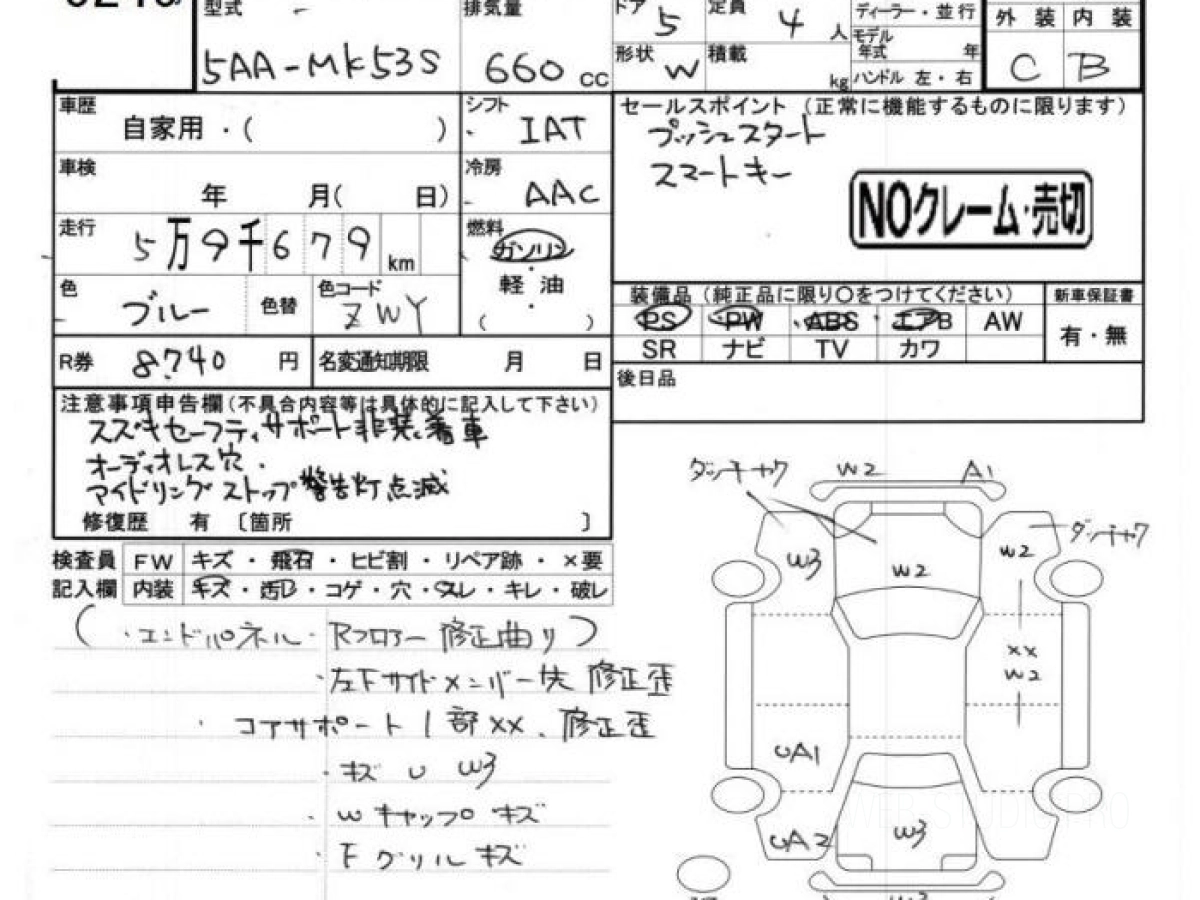 型式
5AA-MK53S
排気量
660 cc
ドア 5
定員 4 人
形状 W
積載 kg
ディーラー・並行
モデル年式 年
ハンドル 左・右
外装 内装
C B
車歴
自家用・( )
シフト
IAT
車検
年 月( 日)
冷房
AAC
走行
5万9千679 km
燃料
ガソリン
軽油
( )
色
ブルー
色替
色コード
ZWY
R券 8,740 円
名変通知期限 月 日
セールスポイント (正常に機能するものに限ります)
プッシュスタート
スマートキー
NOクレーム・売切
装備品 (純正品に限り〇をつけてください)
新車保証書
PS PW ABS エアB AW
有・無
SR ナビ TV カワ
後日品
注意事項申告欄(不具合内容等は具体的に記入して下さい)
スズキセーフティサポート非装着車
オーディオレス穴.
アイドリングストップ警告灯点滅
修復歴 有 〔箇所 〕
検査員 FW キズ・飛石・ヒビ割・リペア跡・×要
記入欄 内装 キズ・汚レ・コゲ・穴・スレ・キレ・破レ
(・エンドパネル・Rフロアー修正曲り)
・左下サイドメンバー先 修正歪
・コアサポート1部XX、修正歪
・キズ U W3
・Wキャップ キズ
・Fグリル キズ
W2
A1
W3
W2
W2
XX
W2
UA1
UA2
W3
W3